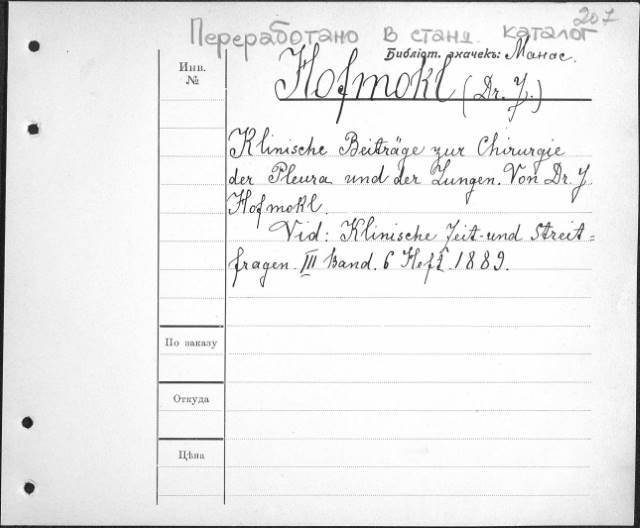 207
Переработано в станд. каталог
Инв.
№
Библіот. значекъ: Манас.
Hofmokl (Dr. J.)
Klinische Beiträge zur Chirurgie
der Pleura und der Lungen. Von Dr. J.
Hofmokl.
Vid: Klinische Zeit- und Streit=
fragen. III Band. 6 Heft. 1889.
По заказу
Откуда
Цѣна